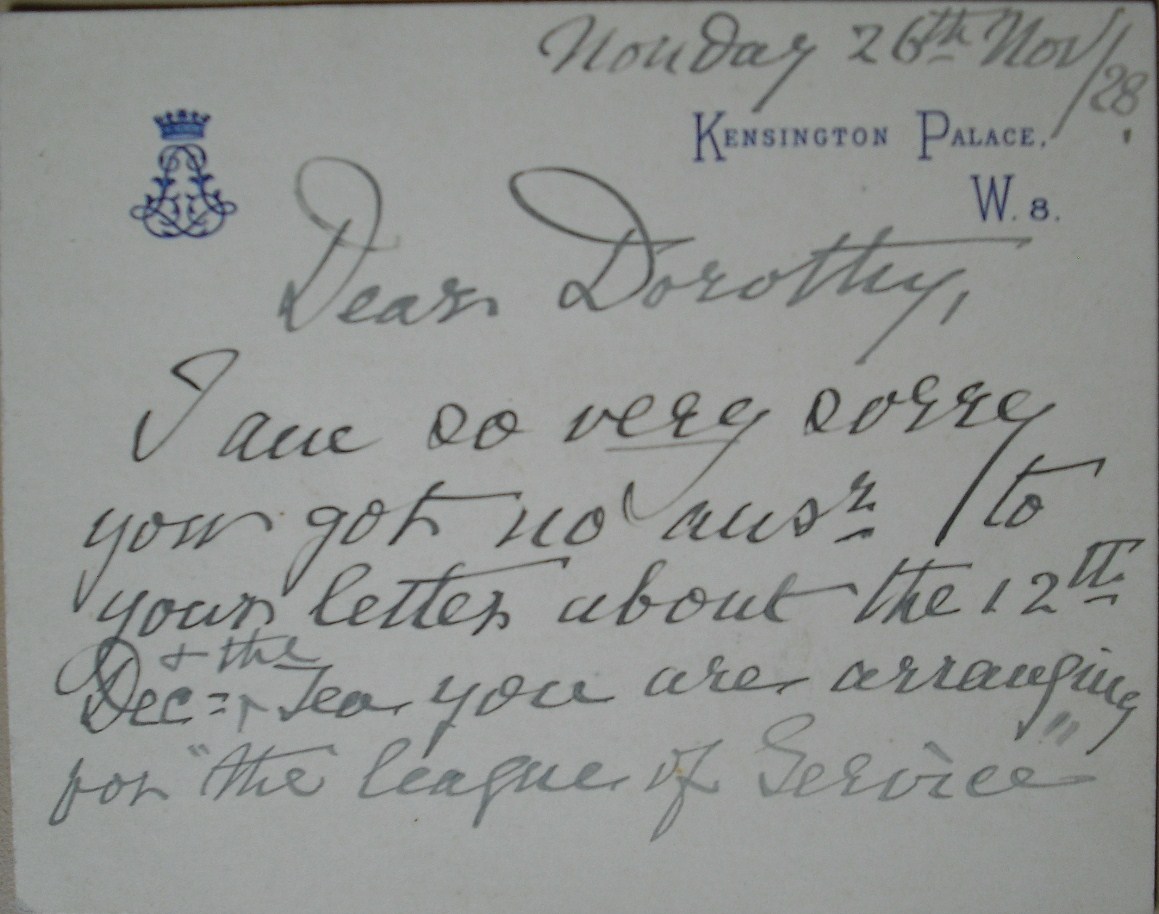 Monday 26th Nov/28.
KENSINGTON PALACE,
W. 8.
Dear Dorothy,
I am so very sorry
you got no ansr to
your letter about the 12th
+ the
Dec= Tea you are arranging
for "the league of Service"